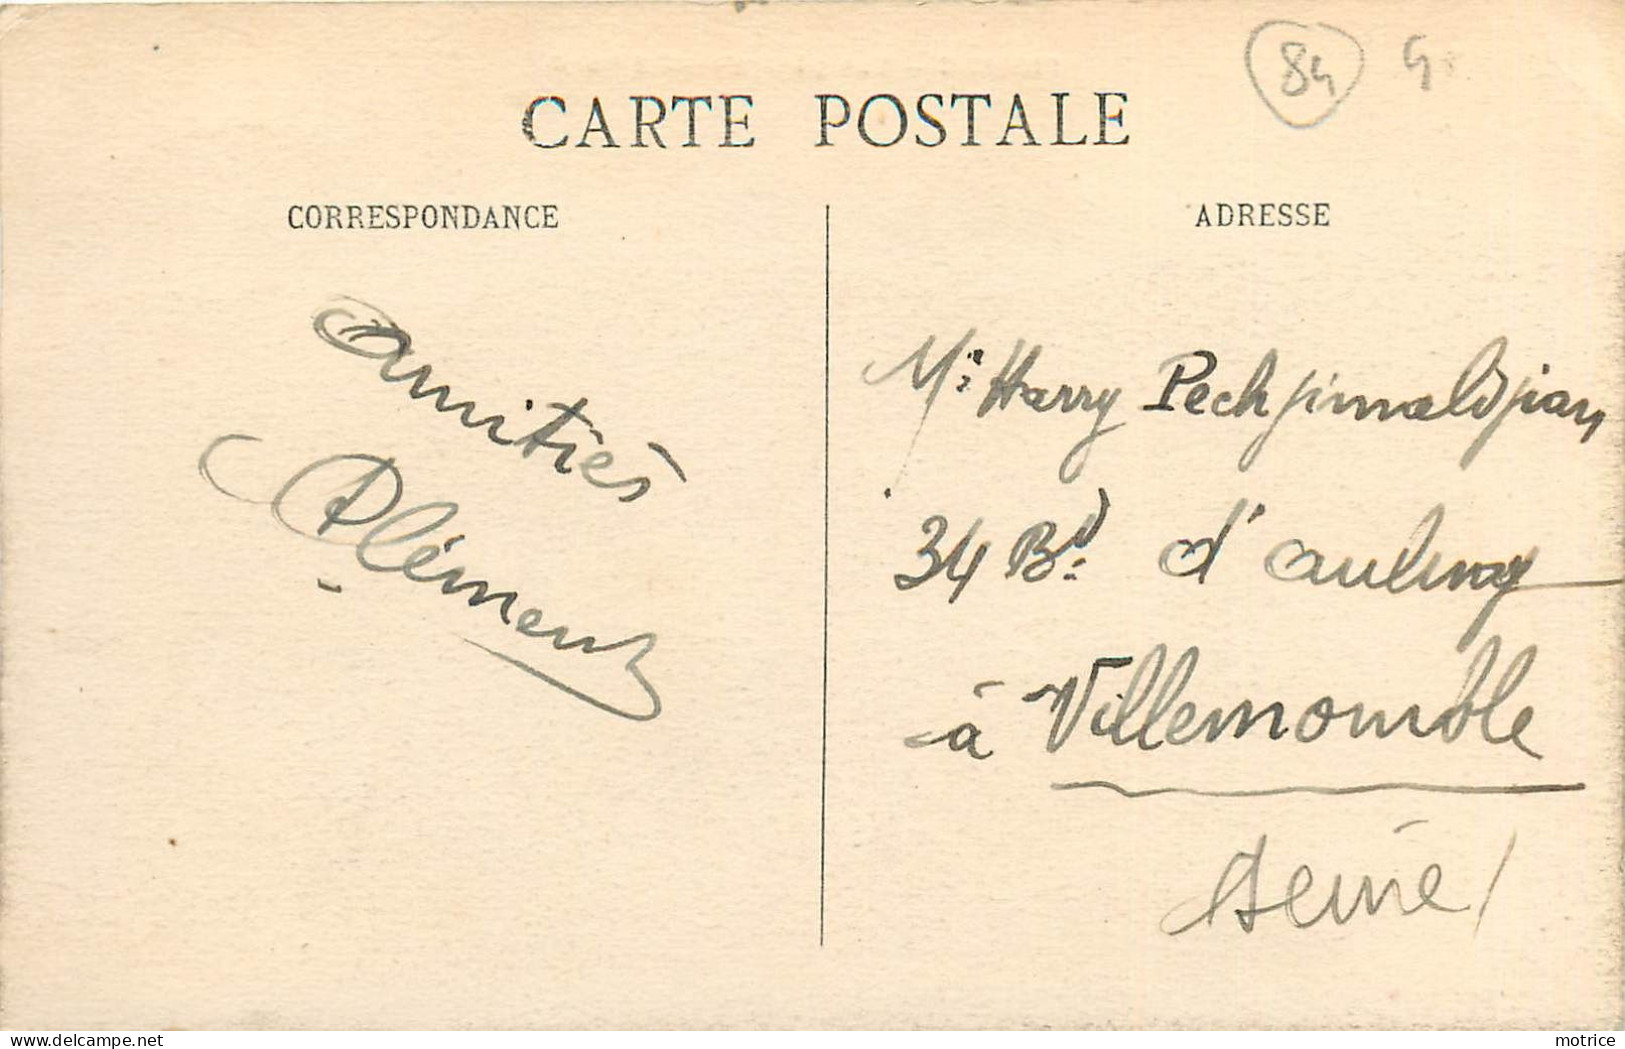 84 G
CARTE POSTALE
CORRESPONDANCE
ADRESSE
amitiés
Clément
Mr Harry Pechjimaldjian
34 Bd d'aulnay
à Villemomble
Seine
delcampe.net
motrice